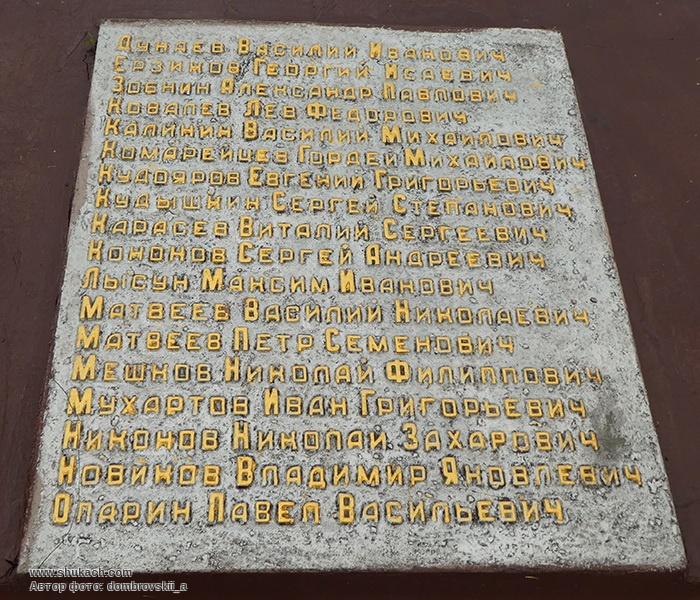 Дунаев Василий Иванович
Ерзиков Георгий Исаевич
Зобнин Александр Павлович
Ковалев Лев Федорович
Калинин Василий Михайлович
Комарейцев Гордей Михайлович
Кудояров Евгений Григорьевич
Кудышкин Сергей Степанович
Карасев Виталий Сергеевич
Кононов Сергей Андреевич
Лысун Максим Иванович
Матвеев Василий Николаевич
Матвеев Петр Семенович
Мешков Николай Филиппович
Мухартов Иван Григорьевич
Никонов Николай Захарович
Новиков Владимир Яковлевич
Опарин Павел Васильевич
www.shukach.com
Автор фото: dombrovskii_a